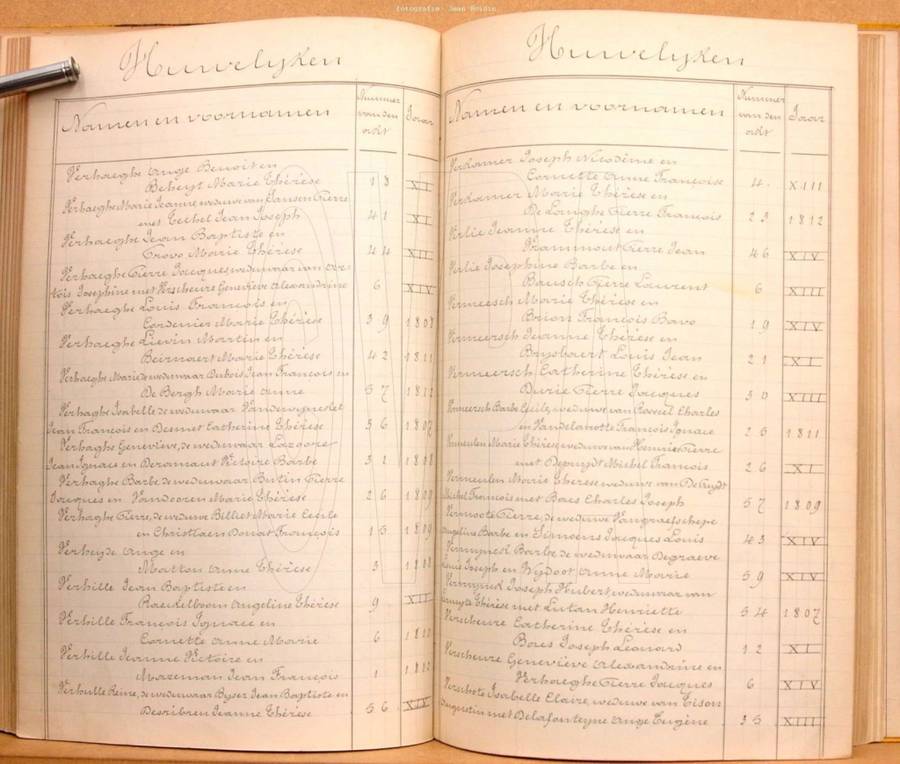 fotografie: Jean Roidin
Huwelijken
Namen en voornamen
Nummer van den akt
Jaar
Verhaeghe Ange Benoit en
Beheyt Marie Thérèse 18 XI
Verhaeghe Marie Jeanne weduwe van Jansen Pierre
met Techel Jean Joseph 41 XI
Verhaeghe Jean Baptiste en
Trovo Marie Thérèse 44 XII
Verhaeghe Pierre Jacques weduwaar van
tois Josephine met Verscheure Geneviève Alexandrine 6 XIV
Verhaeghe Louis François en
Cordenier Marie Thérèse 39 1808
Verhaeghe Lievin Martin en
Beirnaert Marie Thérèse 42 1811
Verhaeghe Marie de weduwaar Dubois Jean François en
De Bergh Marie Anne 57 1812
Verhaghe Isabelle de weduwaar
Jean François en Desmet Catherine Thérèse 36 1807
Verhaghe Geneviève, de weduwaar
Jean Ignace en Deramaut Victoire Barbe 31 1808
Verhaghe Barbe de weduwaar Butin Pierre
Jacques en Vandooren Marie Thérèse 26 1809
Verhaghe Pierre, de weduwe Billiet Marie Cecile
en Christiaen Donat François 15 1809
Verheyde Ange en
Matton Anne Thérèse 3
Verhille Jean Baptiste en
Roeckelboom Angeline Thérèse 9 XII
Verhille François Ignace en
Cornette Anne Marie 6
Verhille Jeanne Victoire en
Mazeman Jean François 1 1812
Verhulle Reine, de weduwaar Byser Jean Baptiste en
Jeanne Thérèse 56
Huwelijken
Namen en voornamen
Nummer van den akt
Jaar
Verdonner Joseph Nicodème en
Cornette Anne Françoise 4. XIII
Verdonner Marie Thérèse en
De Langhe Pierre François 23 1812
Verlie Jeanne Thérèse en
Frammout Pierre Jean 46 XIV
Verlie Josephine Barbe en
Bausch Pierre Laurent 6 XIII
Vermeesch Marie Thérèse en
Brion François Bavo 19 XIV
Vermeersch Jeanne Thérèse en
Brysbaert Louis Jean 21 XI
Vermeersch Catherine Thérèse en
Durie Pierre Jacques 30 XIII
Vermeersch Barbe Cecile, weduwe van Rosseil Charles
en Vandelanotte François Ignace 25 1811
Vermeulen Marie Thérèse weduwe van Hennie Pierre
met Depuydt Michel François 26 XI
Vermeulen Marie Thérèse weduwe van De Tuydt
Michel François met Baes Charles Joseph 57 1809
Vermoote Pierre, de weduwe Vangraefschepe
Angeline Barbe en Simoens Jacques Louis 43 XIV
Vermynck Barbe de weduwaar Degraeve
Louis Joseph en Wydoot Anne Marie 59 XIV
Vermynck Joseph Hubert, weduwaar van
Thérèse met Lutan Henriette 54 1807
Verscheure Catherine Thérèse en
Baes Joseph Leonard 12 XI
Verscheure Geneviève Alexandrine en
Verhaeghe Pierre Jacques 6 XIV
Verschote Isabelle Claire, weduwe van Tison
Augustin met Delafonteyne Ange Eugène 35 XIII